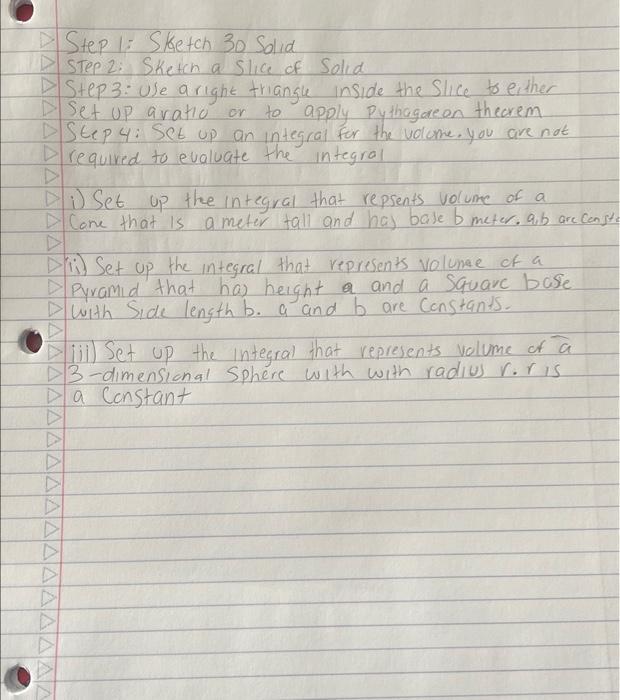 Step 1: Sketch 3D Solid
STEP 2: Sketch a Slice of Solid
Step 3: Use a right triangle inside the Slice to either
Set up a ratio or to apply Pythagorean theorem
Step 4: Set up an integral for the volume. you are not
required to evaluate the integral
i) Set up the integral that repsents volume of a
Cone that is a meter tall and has base b meter. a,b are
ii) Set up the integral that represents volume of a
Pyramid that has height a and a square base
with Side length b. a and b are Constants.
iii) Set up the integral that represents volume of a
3-dimensional Sphere with with radius r. r is
a Constant